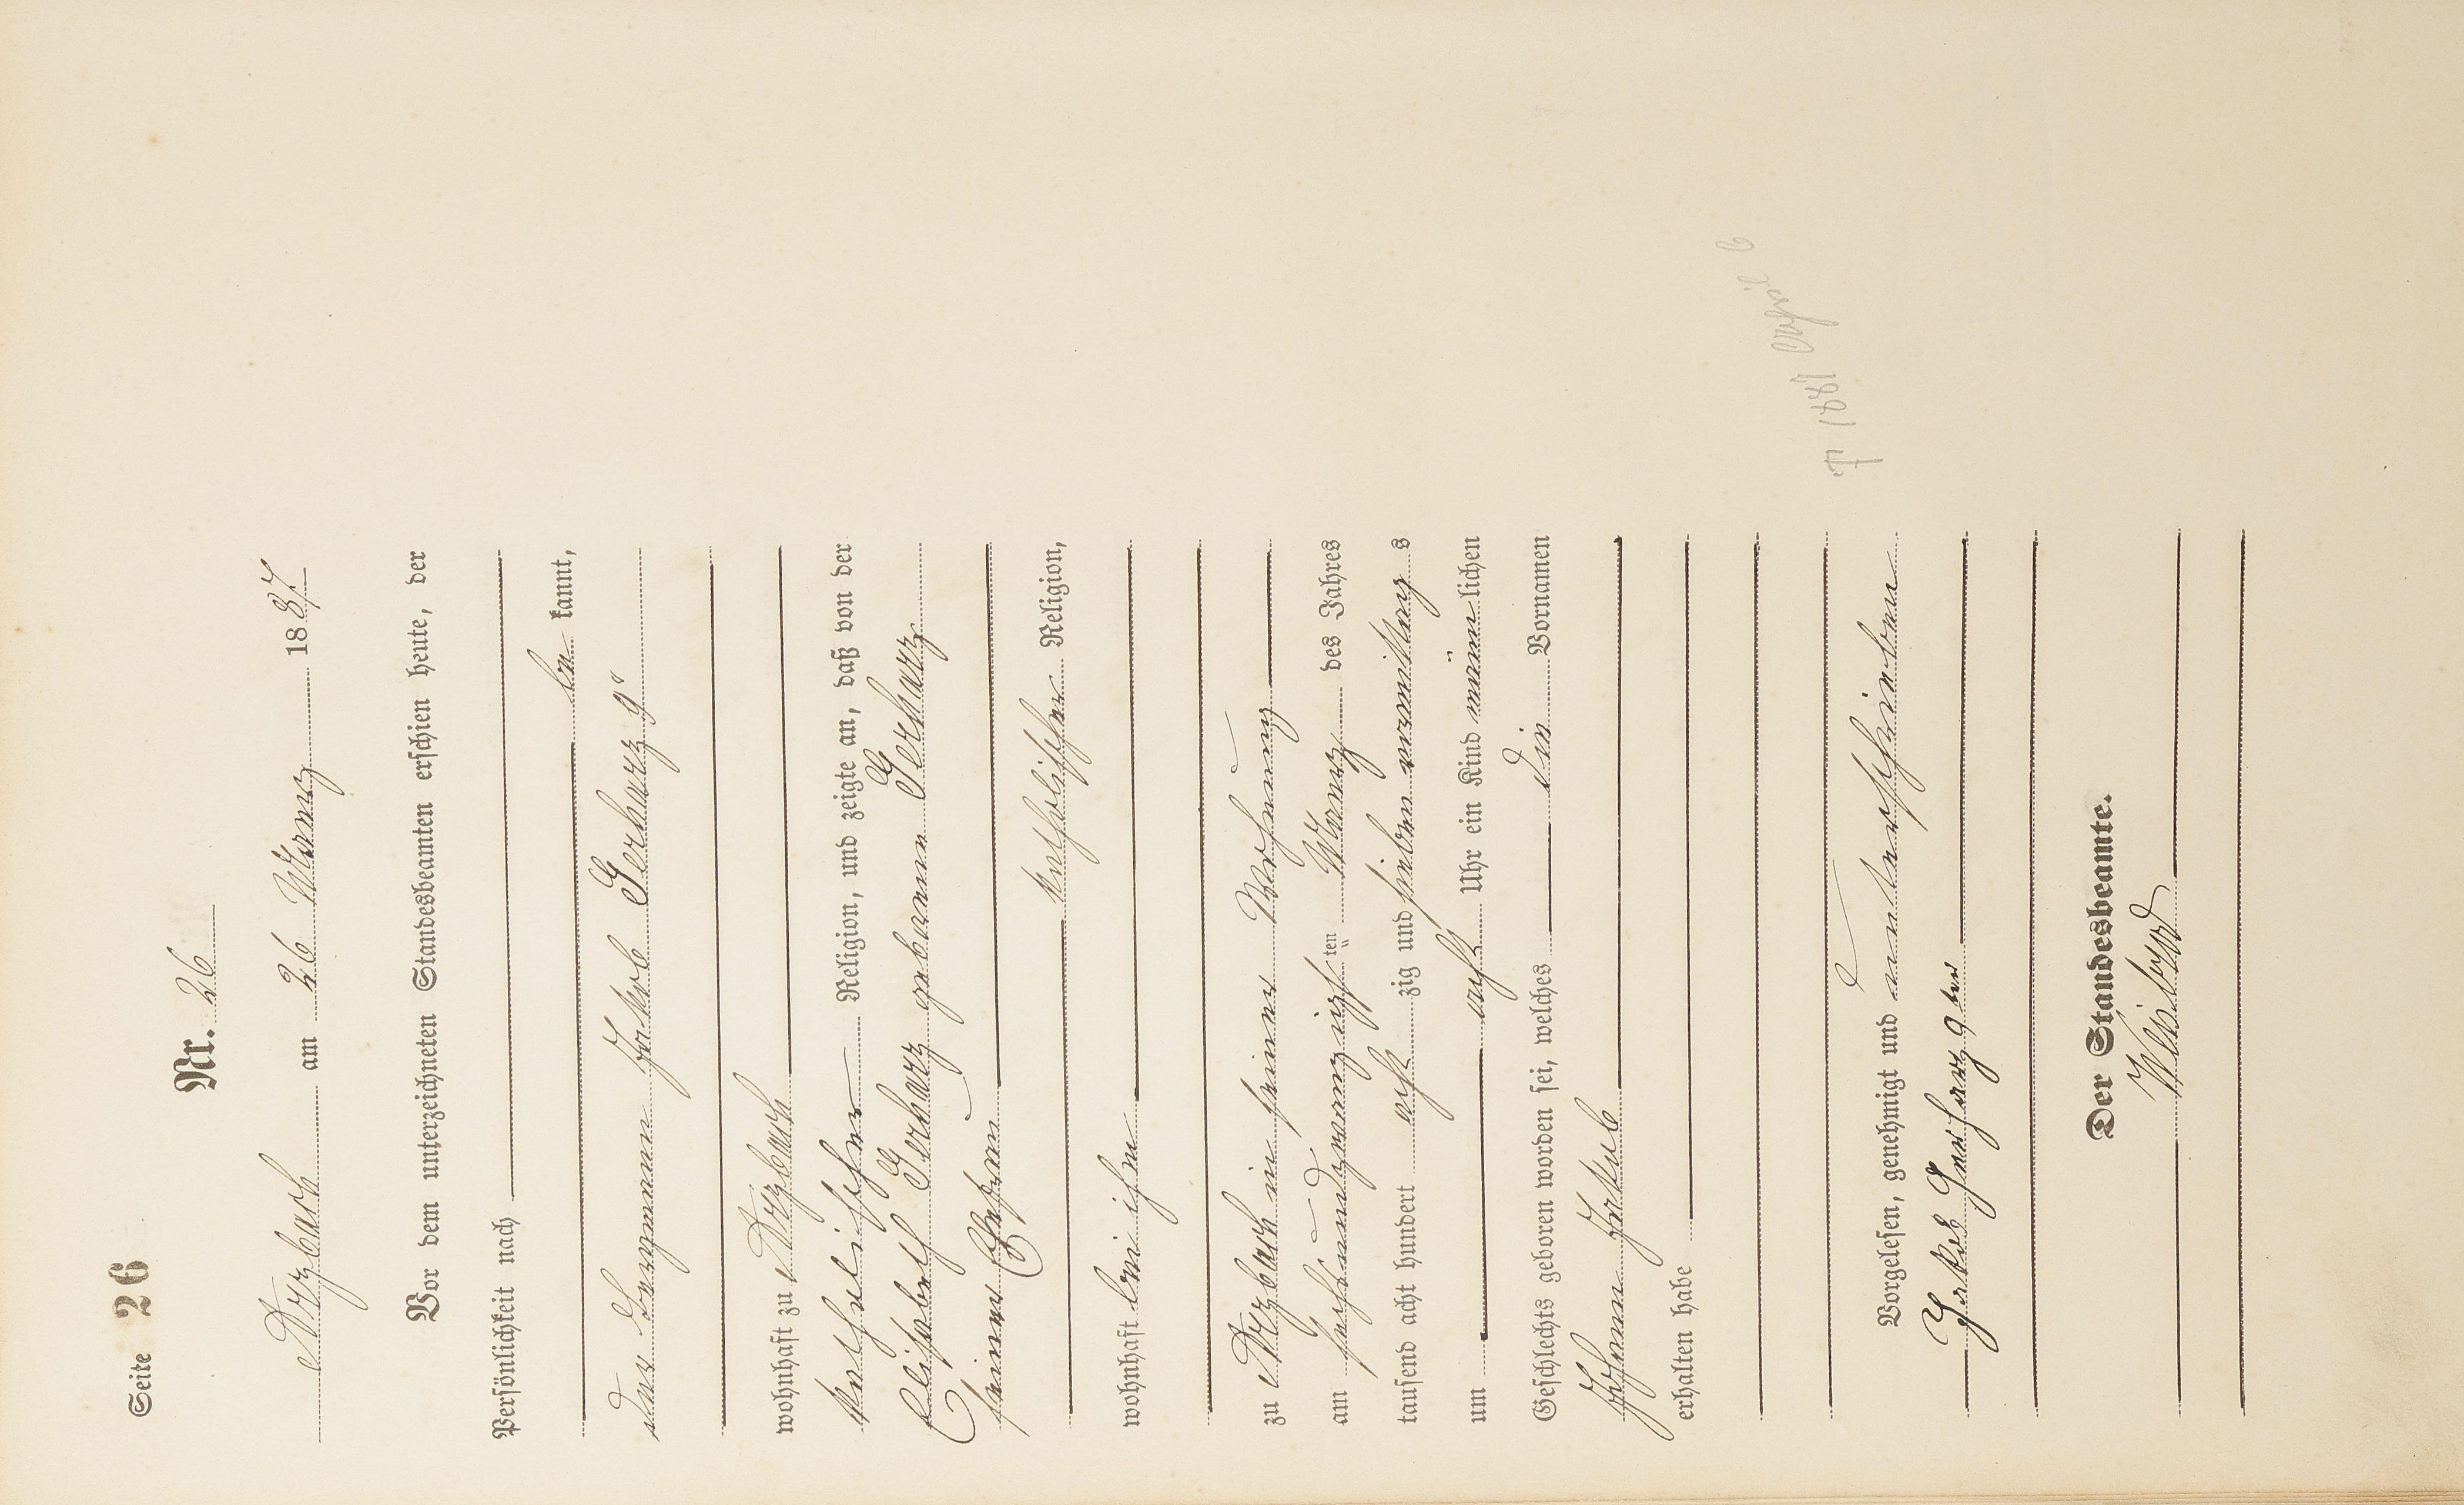 Seite 26
Nr. 26
Arzbach am 26 Maerz 1887
Vor dem unterzeichneten Standesbeamten erschien heute, der
Persönlichkeit nach
be kannt,
der Bergmann Jakob Gerharz 9"
wohnhaft zu Arzbach
katholischer Religion, und zeigte an, daß von der
Elisabeth Gerharz geborene Gerharz
seiner Ehefrau
katholischer Religion,
wohnhaft bei ihm
zu Arzbach in seiner Wohnung
am sechsundzwanzigsten Maerz des Jahres
tausend acht hundert acht zig und sieben vormittags
um acht Uhr ein Kind männlichen
Geschlechts geboren worden sei, welches die Vornamen
Johann Jakob
erhalten habe
† 1887 April 6
Vorgelesen, genehmigt und unterschrieben
Jakob Gerharz 9ter
Der Standesbeamte.